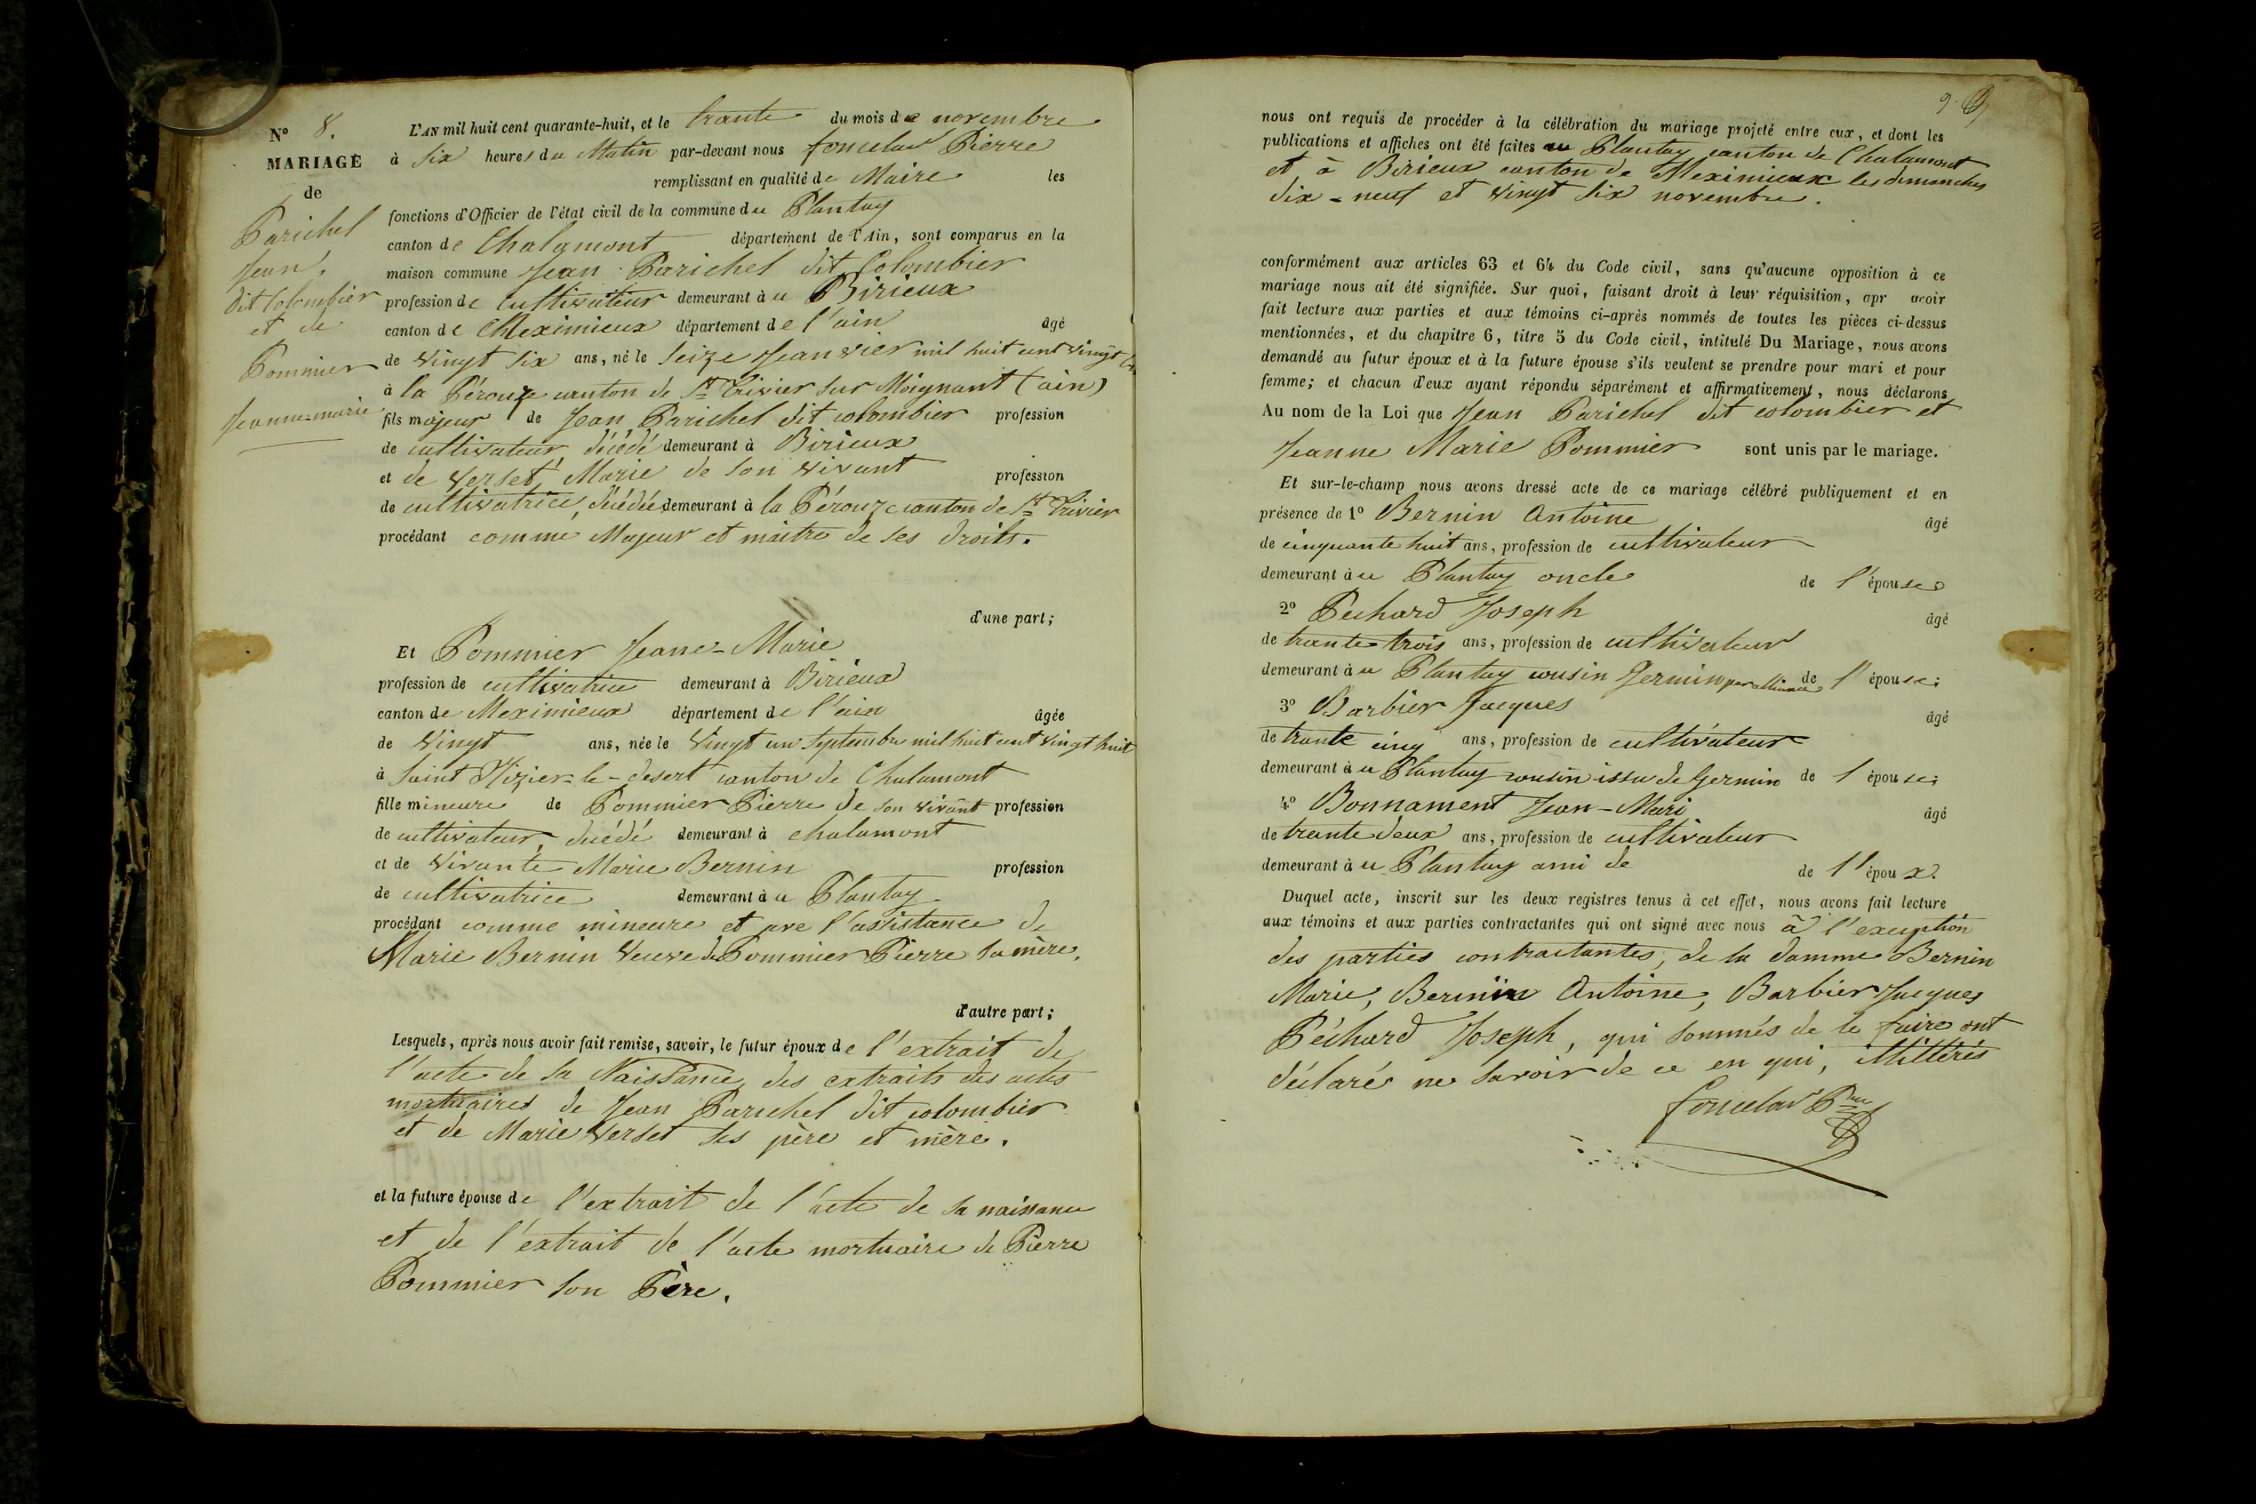 N° 8.
MARIAGE
de
Parichel
Jean,
dit Colombier
et de
Pommier
Jeanne-marie
L'AN mil huit cent quarante-huit, et le trante du mois de novembre
à Six heures du Matin par-devant nous Pierre
remplissant en qualité de Maire les
fonctions d'Officier de l'état civil de la commune du Plantay
canton de Chalamont département de l'Ain, sont comparus en la
maison commune Jean Parichel dit Colombier
profession de cultivateur demeurant à u Birieux
canton de Meximieux département de l'ain âgé
de vingt six ans, né le seize Jeanvier mil huit cent vingt
à la Pérouze canton de St Trivier sur Moignant (ain)
fils majeur de Jean Parichel dit colombier profession
de cultivateur, décédé demeurant à Birieux
et de Verset Marie de son vivant profession
de cultivatrice, décédée demeurant à la Pérouze canton de St Trivier
procédant comme Majeur et maitre de ses droits.
d'une part;
Et Pommier Jeane-Marie
profession de cultivatrice demeurant à Birieux
canton de Meximieux département de l'ain âgée
de vingt ans, née le vingt un Septembre mil huit cent vingt huit
à Saint Nizier-le-desert canton de Chalamont
fille mineure de Pommier Pierre de son vivant profession
de cultivateur, décédé demeurant à chalamont
et de vivante Marie Bernin profession
de cultivatrice demeurant à u Plantay
procédant comme mineure et ave l'assistance de
Marie Bernin veuve de Pommier Pierre sa mère.
d'autre part;
Lesquels, après nous avoir fait remise, savoir, le futur époux de l'extrait de
l'acte de sa Naissance, des extraits des actes
mortuaires de Jean Parichel dit colombier
et de Marie Verset ses père et mère.
et la future épouse de l'extrait de l'acte de sa naissance
et de l'extrait de l'acte mortuaire de Pierre
Pommier son Père.
9
nous ont requis de procéder à la célébration du mariage projeté entre eux, et dont les
publications et affiches ont été faites au Plantay canton de Chalamont
et à Birieux canton de Meximieux les dimanches
dix-neuf et vingt six novembre.
conformément aux articles 63 et 64 du Code civil, sans qu'aucune opposition à ce
mariage nous ait été signifiée. Sur quoi, faisant droit à leur réquisition, apr avoir
fait lecture aux parties et aux témoins ci-après nommés de toutes les pièces ci-dessus
mentionnées, et du chapitre 6, titre 5 du Code civil, intitulé Du Mariage, nous avons
demandé au futur époux et à la future épouse s'ils veulent se prendre pour mari et pour
femme; et chacun d'eux ayant répondu séparément et affirmativement, nous déclarons
Au nom de la Loi que Jean Parichel dit colombier et
Jeanne Marie Pommier sont unis par le mariage.
Et sur-le-champ nous avons dressé acte de ce mariage célébré publiquement et en
présence de 1° Bernin Antoine âgé
de cinquante huit ans, profession de cultivateur
demeurant à u Plantay oncle de l'épouse
2° Pechard Joseph âgé
de trante trois ans, profession de cultivateur
demeurant à u Plantay cousin Germin par alliance de l'épouse;
3° Barbier Jacques âgé
de trante cinq ans, profession de cultivateur
demeurant à u Plantay cousin issu de Germin de l épouse;
4° Bonnament Jean-Mari âgé
de trante deux ans, profession de cultivateur
demeurant à u Plantay ami de de l'époux.
Duquel acte, inscrit sur les deux registres tenus à cet effet, nous avons fait lecture
aux témoins et aux parties contractantes qui ont signé avec nous à l'exception
des parties contractantes, de la damme Bernin
Marie, Bernin Antoine, Barbier Jacques
Péchard Joseph, qui sommés de le faire ont
déclaré ne savoir de ce en qui, illittérés